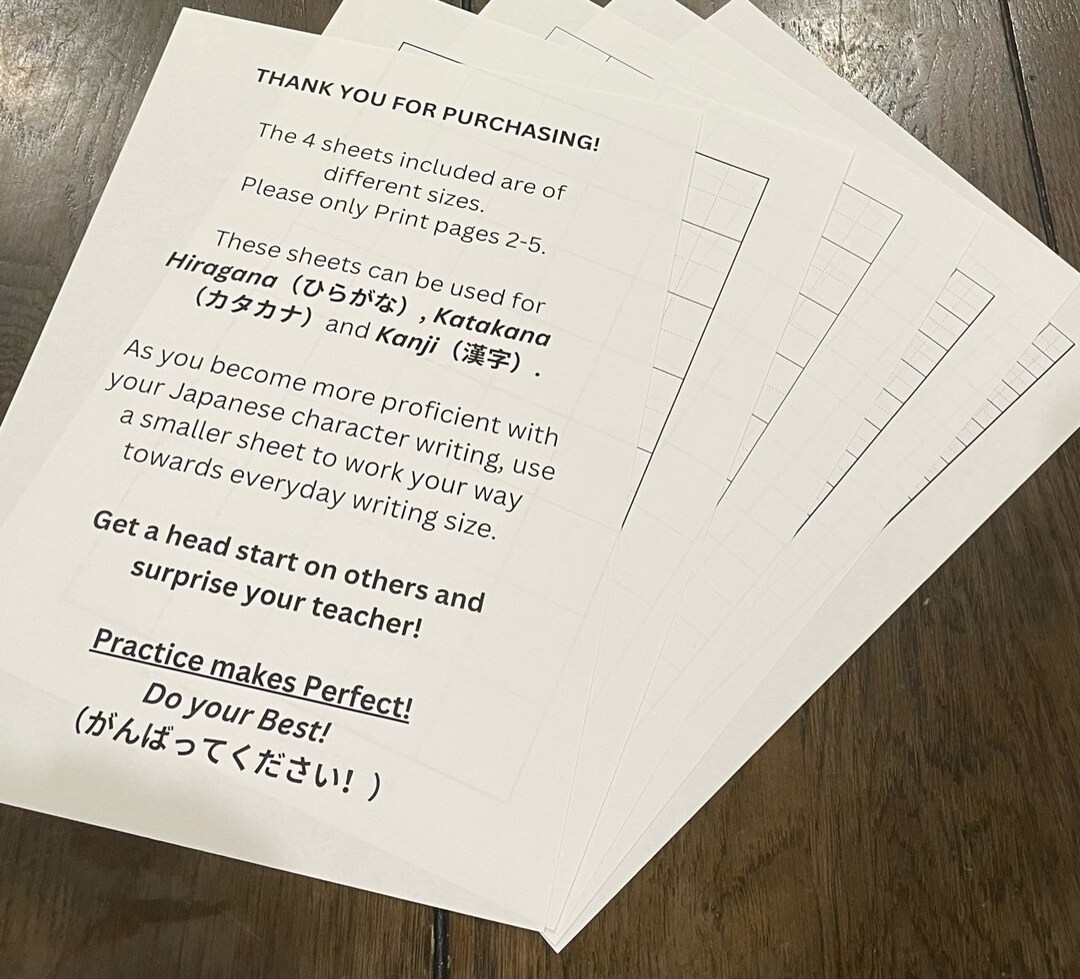 THANK YOU FOR PURCHASING!
The 4 sheets included are of
different sizes.
Please only Print pages 2-5.
These sheets can be used for
Hiragana（ひらがな）, Katakana
（カタカナ）and Kanji（漢字）.
As you become more proficient with
your Japanese character writing, use
a smaller sheet to work your way
towards everyday writing size.
Get a head start on others and
surprise your teacher!
Practice makes Perfect!
Do your Best!
(がんばってください! )